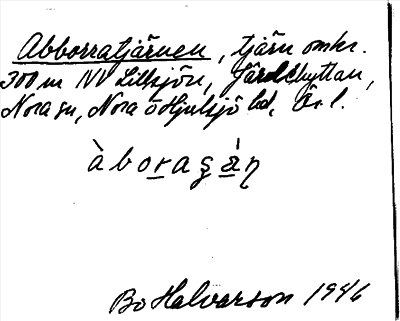 Abborratjärnen, tjärn omkr.
300 m NV Lillsjön, Järdlehyttan,
Nora sn, Nora o Hjulsjö bd, Ör. l.
àboragán
Bo Halvarson 1946